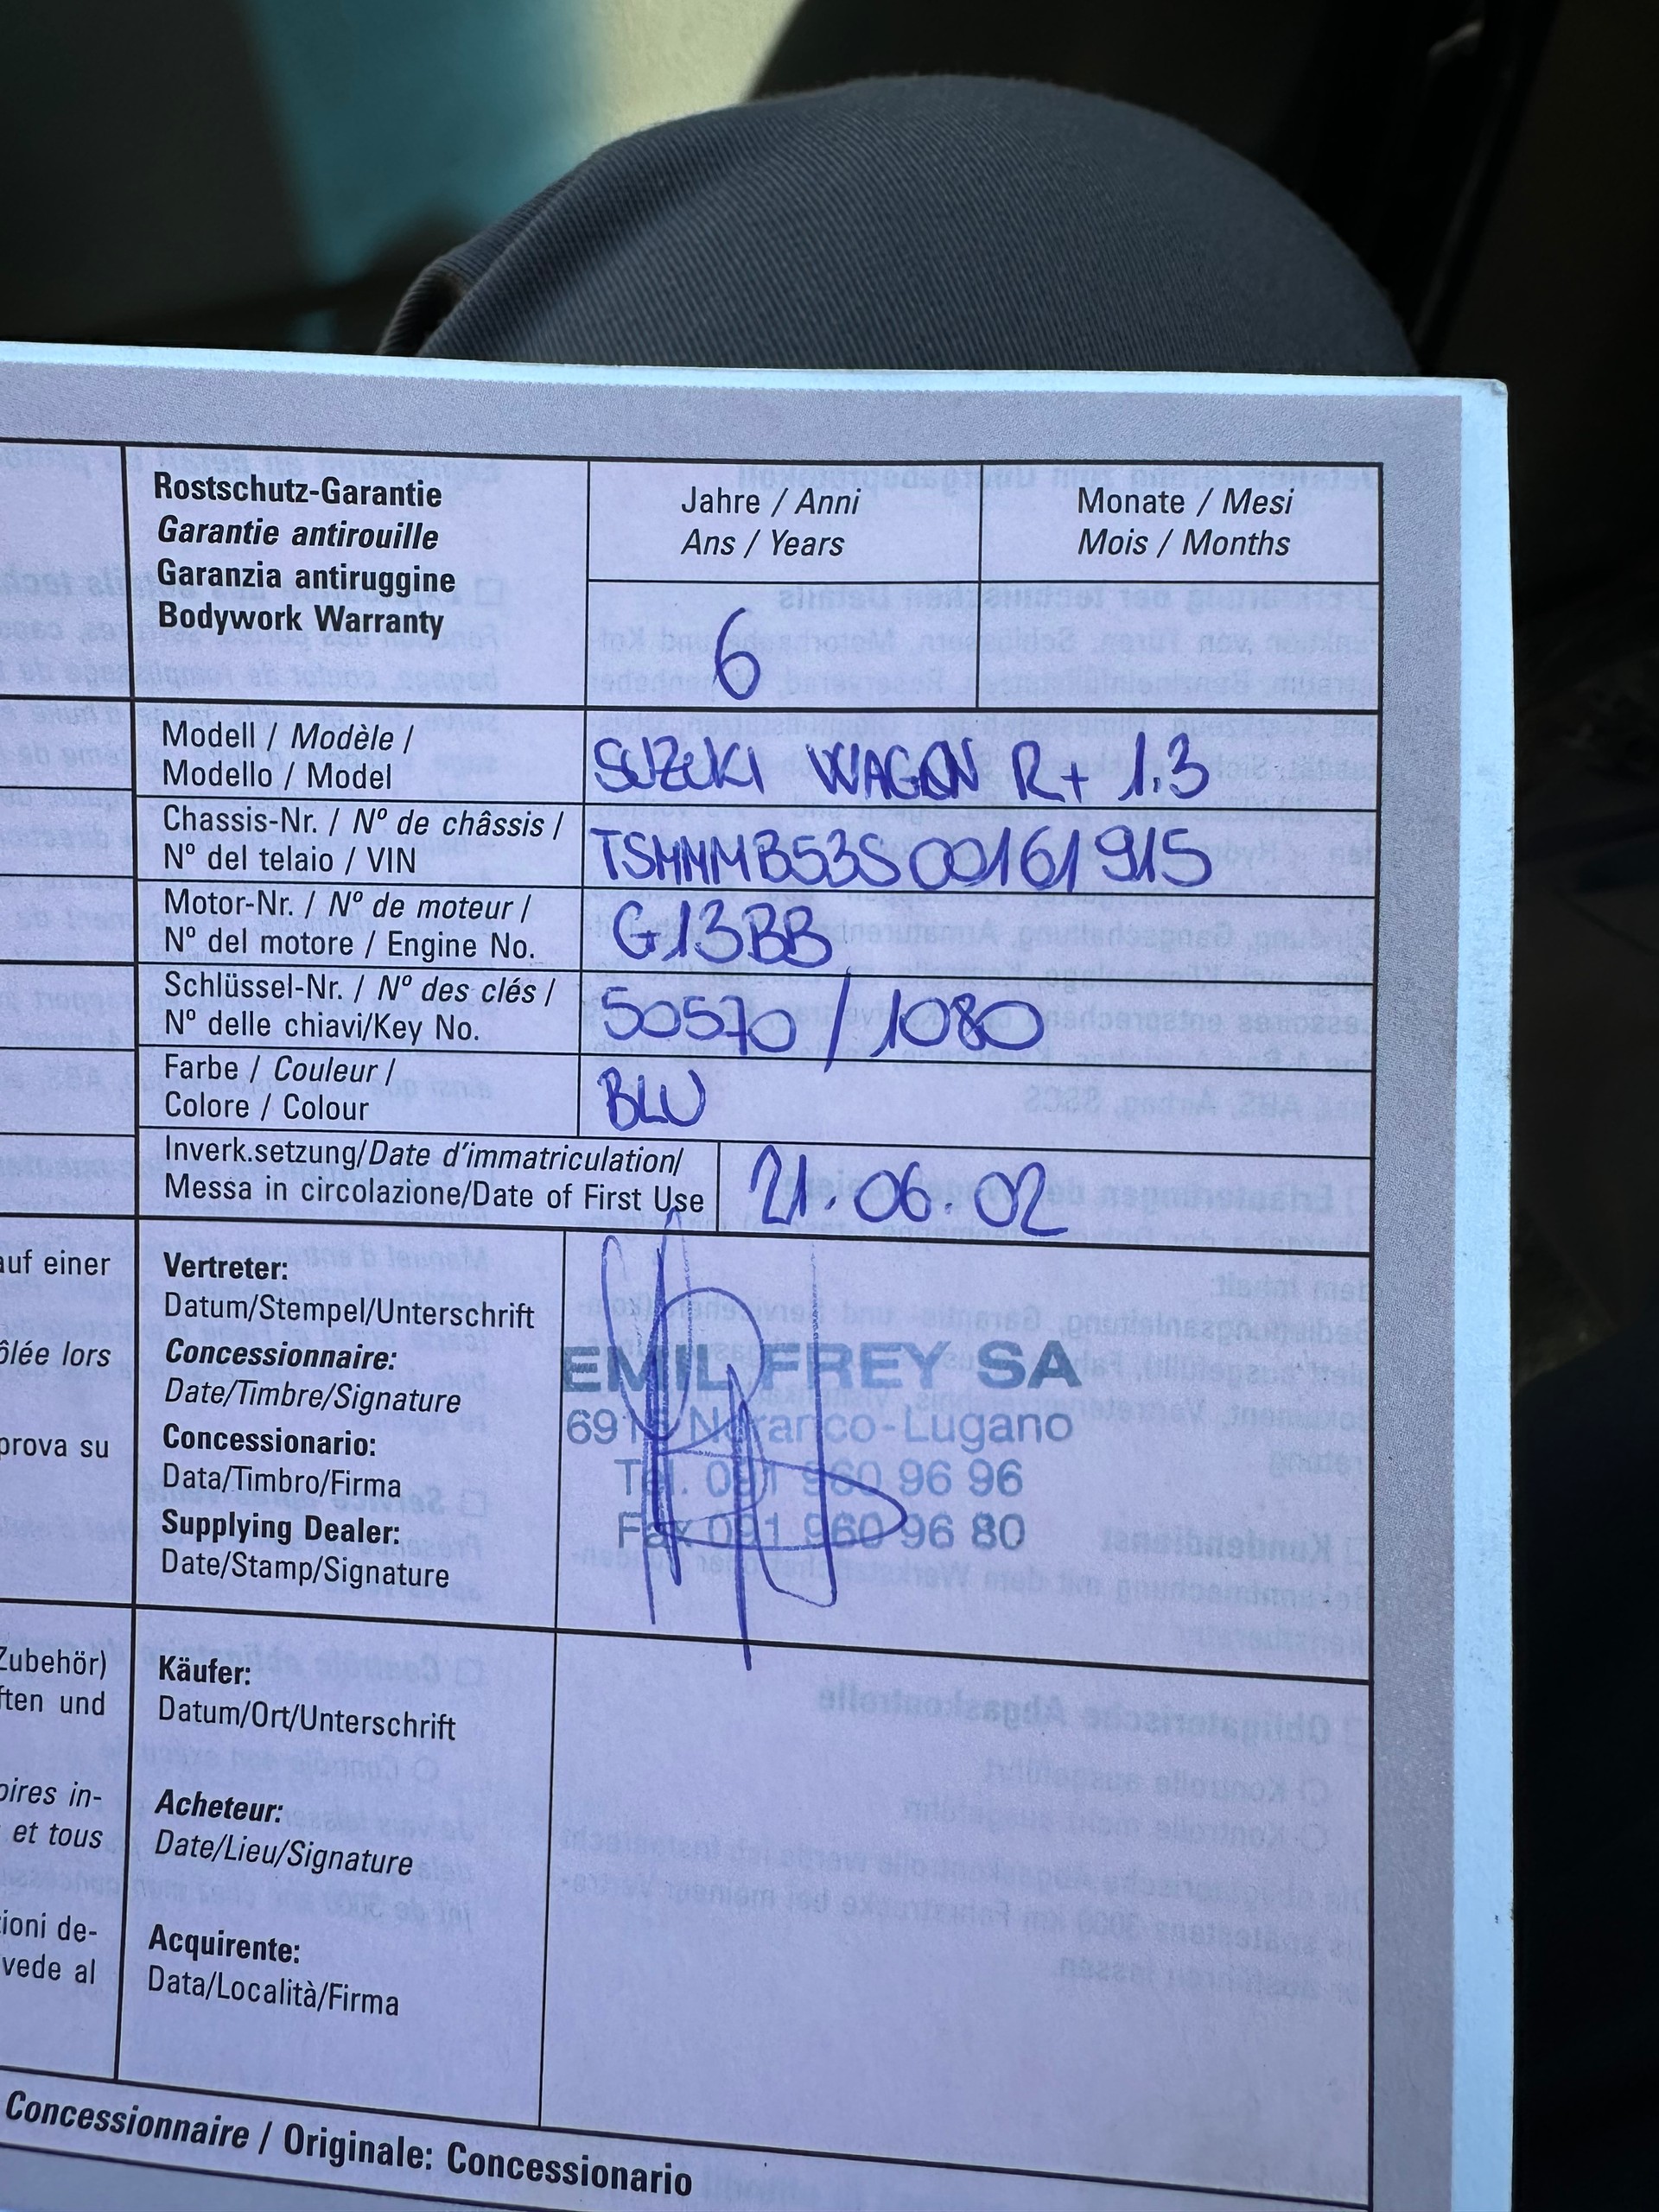 Rostschutz-Garantie
Garantie antirouille
Garanzia antiruggine
Bodywork Warranty
Jahre / Anni
Ans / Years
Monate / Mesi
Mois / Months
6
Modell / Modèle /
Modello / Model
SUZUKI WAGON R+ 1.3
Chassis-Nr. / Nº de châssis /
Nº del telaio / VIN
TSMMMB53S00161915
Motor-Nr. / Nº de moteur /
Nº del motore / Engine No.
G13BB
Schlüssel-Nr. / Nº des clés /
Nº delle chiavi/Key No.
50570 / 1080
Farbe / Couleur /
Colore / Colour
BLU
Inverk.setzung/Date d'immatriculation/
Messa in circolazione/Date of First Use
21.06.02
auf einer
ôlée lors
prova su
Vertreter:
Datum/Stempel/Unterschrift
Concessionnaire:
Date/Timbre/Signature
Concessionario:
Data/Timbro/Firma
Supplying Dealer:
Date/Stamp/Signature
EMIL FREY SA
6915 Noranco-Lugano
Tel. 091 960 96 96
Fax 091 960 96 80
Zubehör)
ften und
oires in-
et tous
ioni de-
vede al
Käufer:
Datum/Ort/Unterschrift
Acheteur:
Date/Lieu/Signature
Acquirente:
Data/Località/Firma
Concessionnaire / Originale: Concessionario